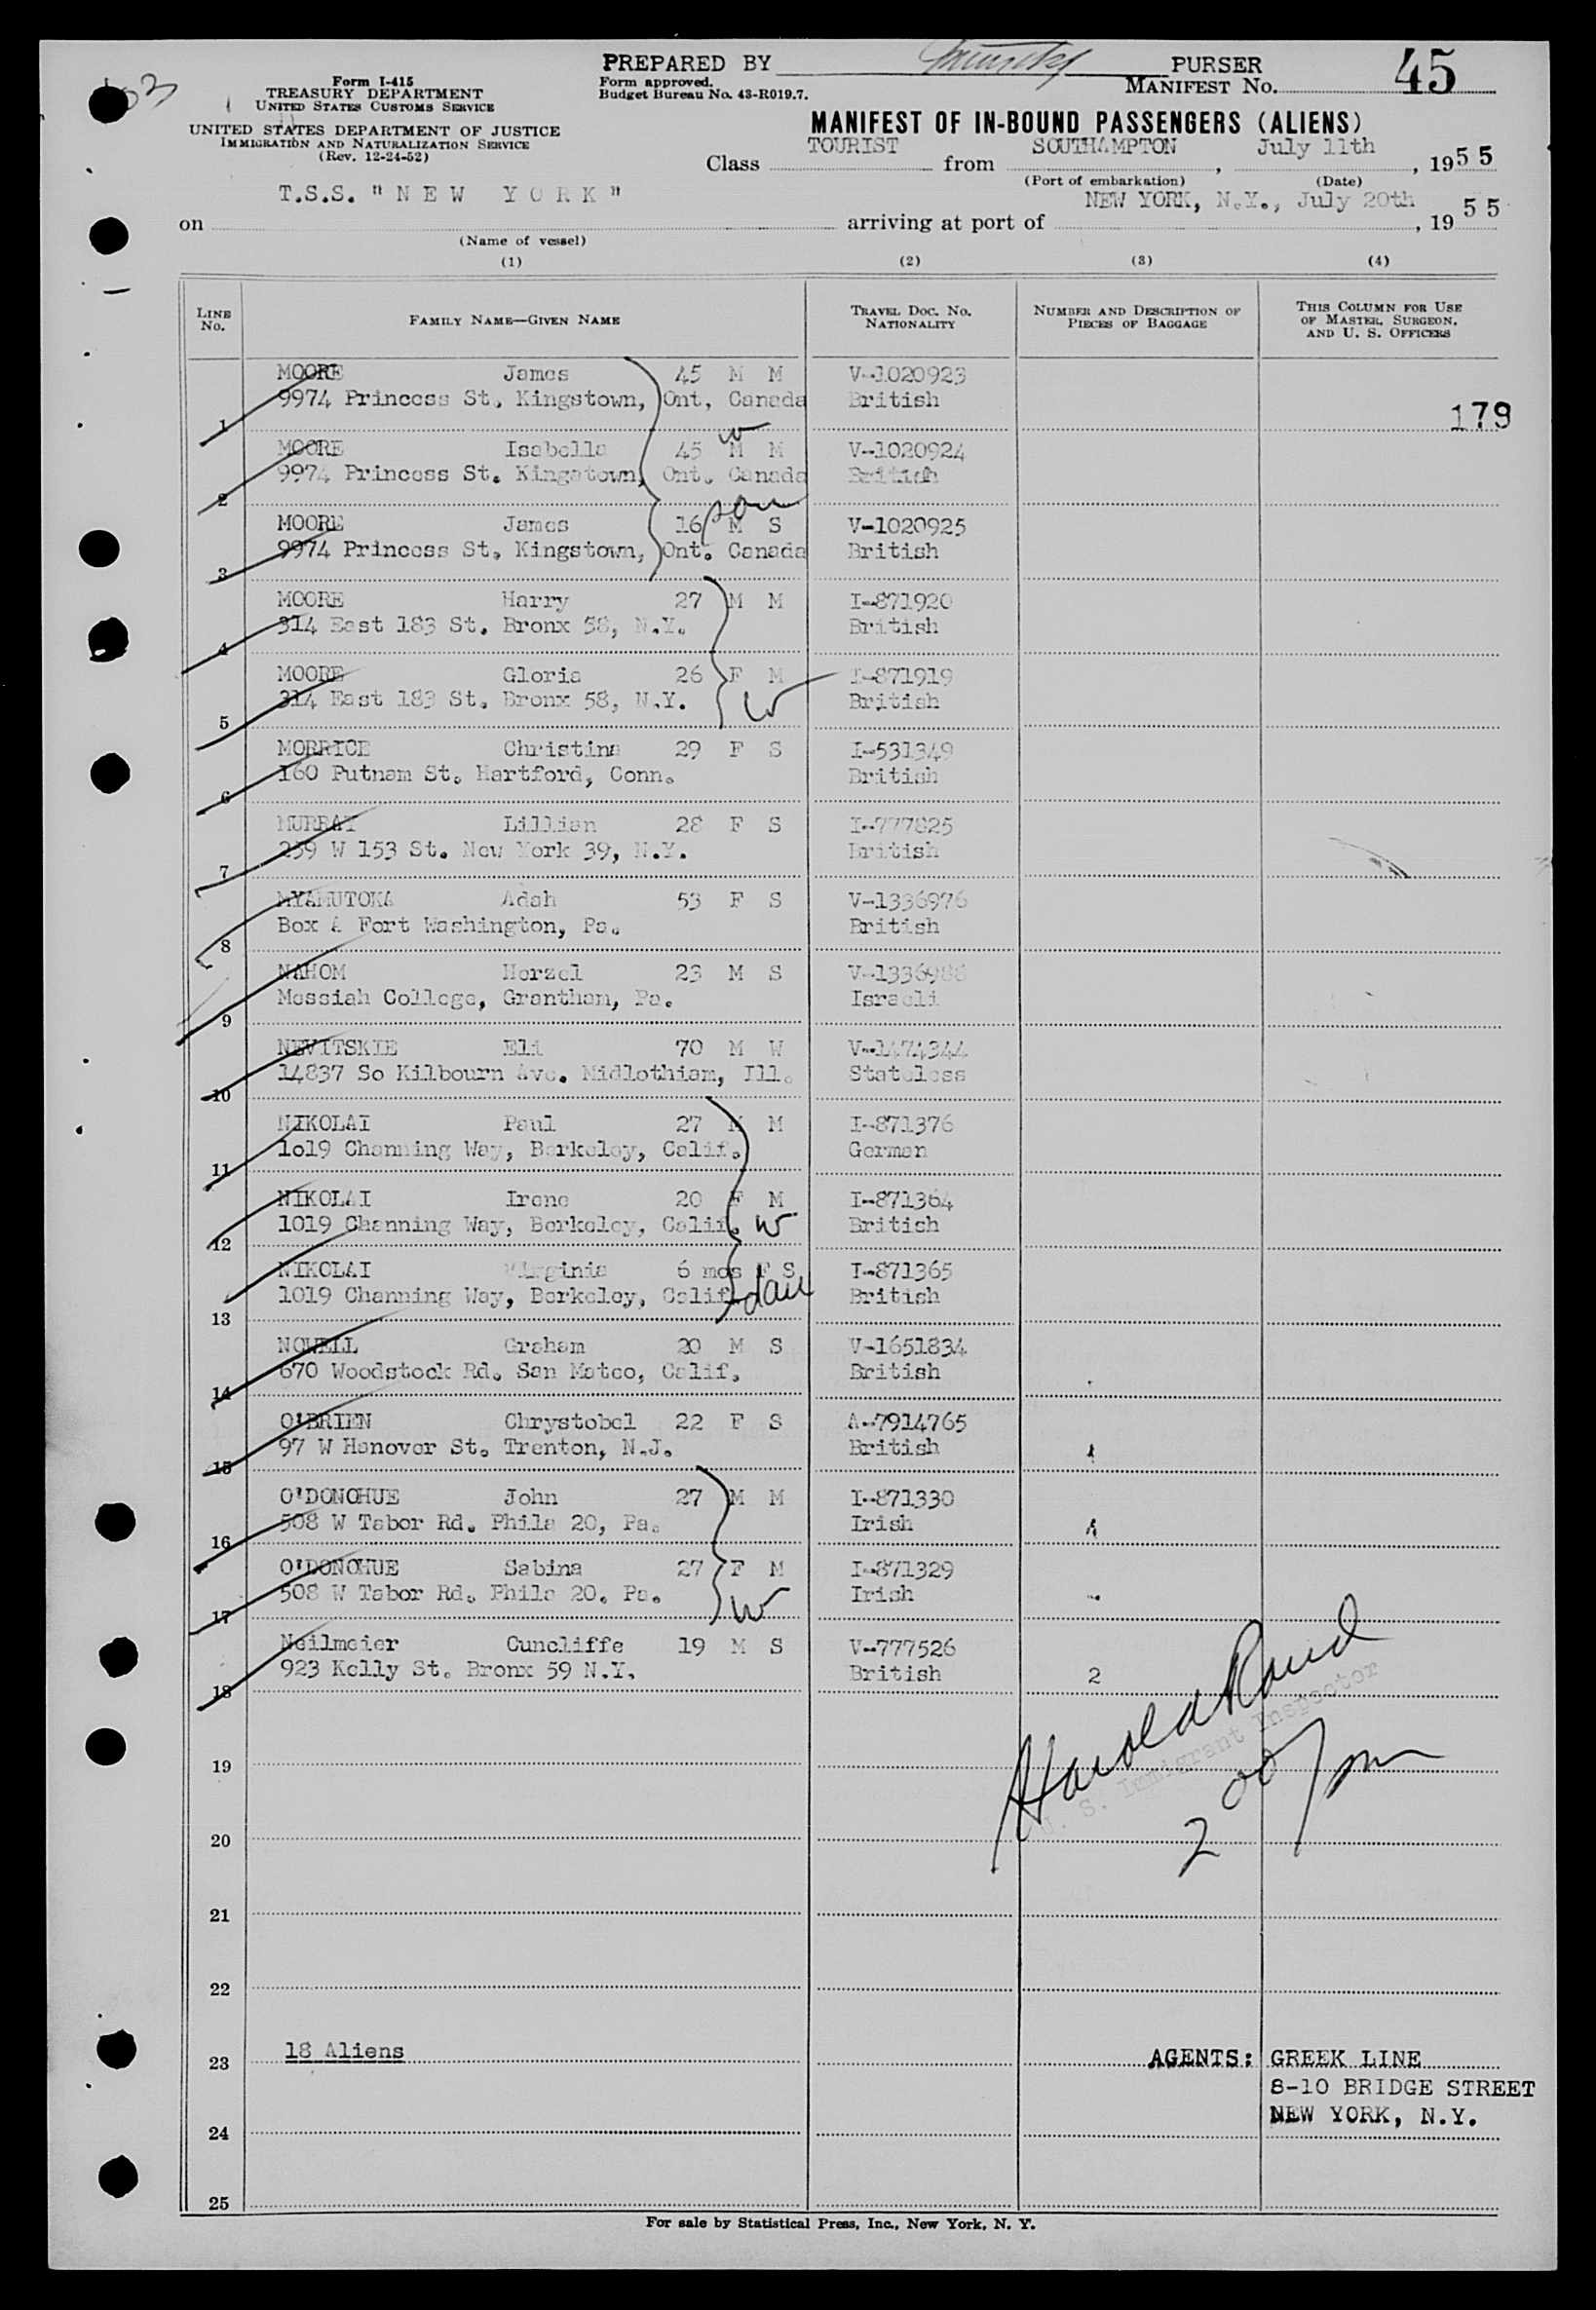 PREPARED BY PURSER 45
Form I-415
TREASURY DEPARTMENT
UNITED STATES CUSTOMS SERVICE
UNITED STATES DEPARTMENT OF JUSTICE
IMMIGRATION AND NATURALIZATION SERVICE
(Rev. 12-24-52)
Form approved.
Budget Bureau No. 43-R019.7.
MANIFEST No.
MANIFEST OF IN-BOUND PASSENGERS (ALIENS)
Class TOURIST from SOUTHAMPTON, July 11th, 1955
(Port of embarkation) (Date)
on T.S.S. "NEW YORK" arriving at port of NEW YORK, N.Y., July 20th, 1955
(Name of vessel)
(1) (2) (3) (4)
LINE No. FAMILY NAME—GIVEN NAME TRAVEL DOC. NO. NATIONALITY NUMBER AND DESCRIPTION OF PIECES OF BAGGAGE THIS COLUMN FOR USE OF MASTER, SURGEON, AND U. S. OFFICERS
MOORE James 45 M M V-1020923
1 9974 Princess St, Kingstown, Ont, Canada British 179
MOORE Isabella 45 M M w V-1020924
2 9974 Princess St. Kingstown, Ont. Canada British
MOORE James 16 M S son V-1020925
3 9974 Princess St, Kingstown, Ont. Canada British
MOORE Harry 27 M M I-871920
4 314 East 183 St. Bronx 58, N.Y. British
MOORE Gloria 26 F M I-871919
5 314 East 183 St. Bronx 58, N.Y. w British
MORRICE Christina 29 F S I-531349
6 160 Putnam St. Hartford, Conn. British
MURRAY Lillian 28 F S I-777825
7 259 W 153 St. New York 39, N.Y. British
MYAMUTOKA Adah 53 F S V-1336976
8 Box A Fort Washington, Pa. British
NAHOM Herzel 23 M S V-1336988
9 Messiah College, Grantham, Pa. Israeli
NEVITSKIE Eli 70 M W V-1474344
10 14837 So Kilbourn Ave. Midlothiam, Ill. Stateless
NIKOLAI Paul 27 M M I-871376
11 1o19 Channing Way, Berkeley, Calif. German
NIKOLAI Irene 20 F M I-871364
12 1019 Channing Way, Berkeley, Calif. w British
NIKOLAI Virginia 6 mos F S I-871365
13 1019 Channing Way, Berkeley, Calif. dau British
NOWELL Graham 20 M S V-1651834
14 670 Woodstock Rd. San Mateo, Calif. British
O'BRIEN Chrystobel 22 F S A-7914765
15 97 W Hanover St. Trenton, N.J. British
O'DONOHUE John 27 M M I-871330
16 508 W Tabor Rd. Phila 20, Pa. Irish
O'DONOHUE Sabina 27 F M I-871329
17 508 W Tabor Rd. Phila 20. Pa. w Irish
Neilmeier Cuncliffe 19 M S V-777526
18 923 Kelly St. Bronx 59 N.Y. British 2
Harold Rand
U. S. Immigrant Inspector
19
2 00 pm
20
21
22
23 18 Aliens AGENTS: GREEK LINE
8-10 BRIDGE STREET
24 NEW YORK, N.Y.
25
For sale by Statistical Press, Inc., New York, N. Y.